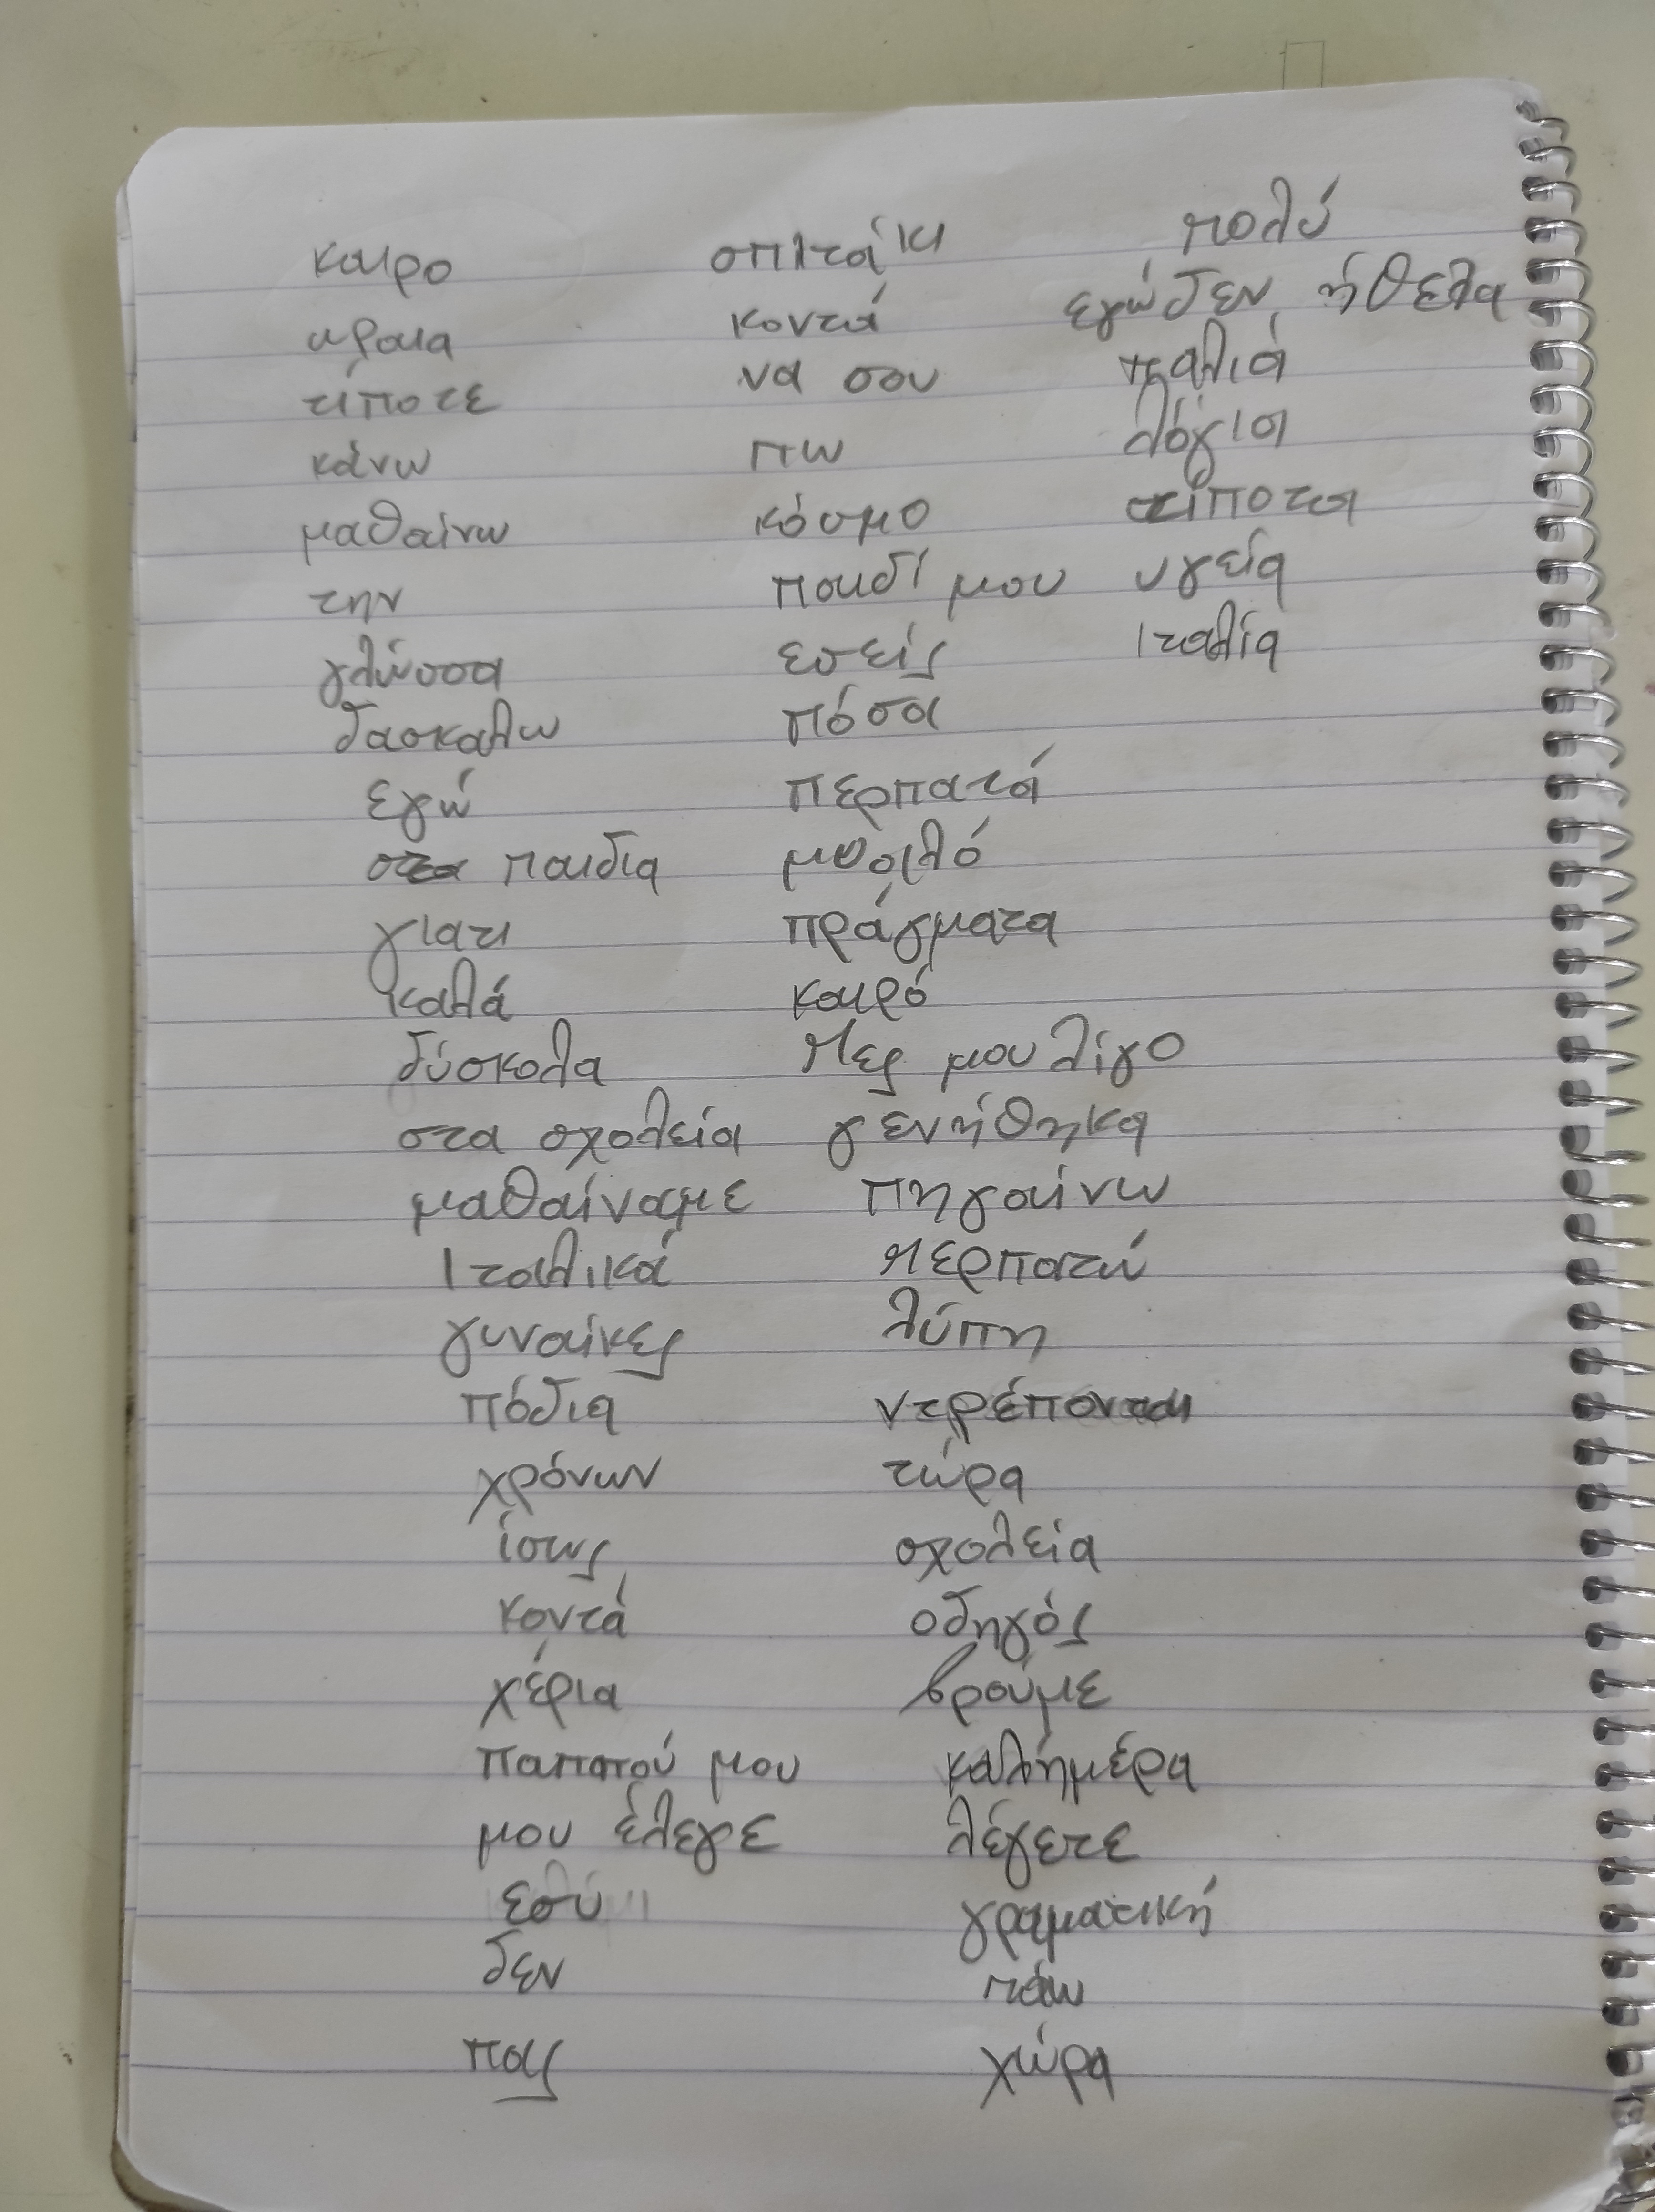 καιρο
ωραια
τίποτε
κάνω
μαθαίνω
την
γλώσσα
δασκαλω
εγώ
στα παιδια
γιατι
καλά
δύσκολα
στα σχολεία
μαθαίναμε
Ιταλικά
γυναίκες
πόδια
χρόνων
ίσως
κοντά
χέρια
παππού μου
μου έλεγε
εσύ
δεν
πας
σπιτάκι
κοντά
να σου
πω
κόσμο
παιδί μου
εσείς
πόσα
περπατά
μυαλό
πράγματα
καιρό
Πες μου λίγο
γενήθηκα
πηγαίνω
περπατώ
λύπη
ντρέπονται
τώρα
σχολεία
οδηγός
βρούμε
καλημέρα
λέγετε
γραματική
πάω
χώρα
πολύ
εγώ δεν ήθελα
παλιά
λόγια
τίποτα
υγεία
Ιταλία